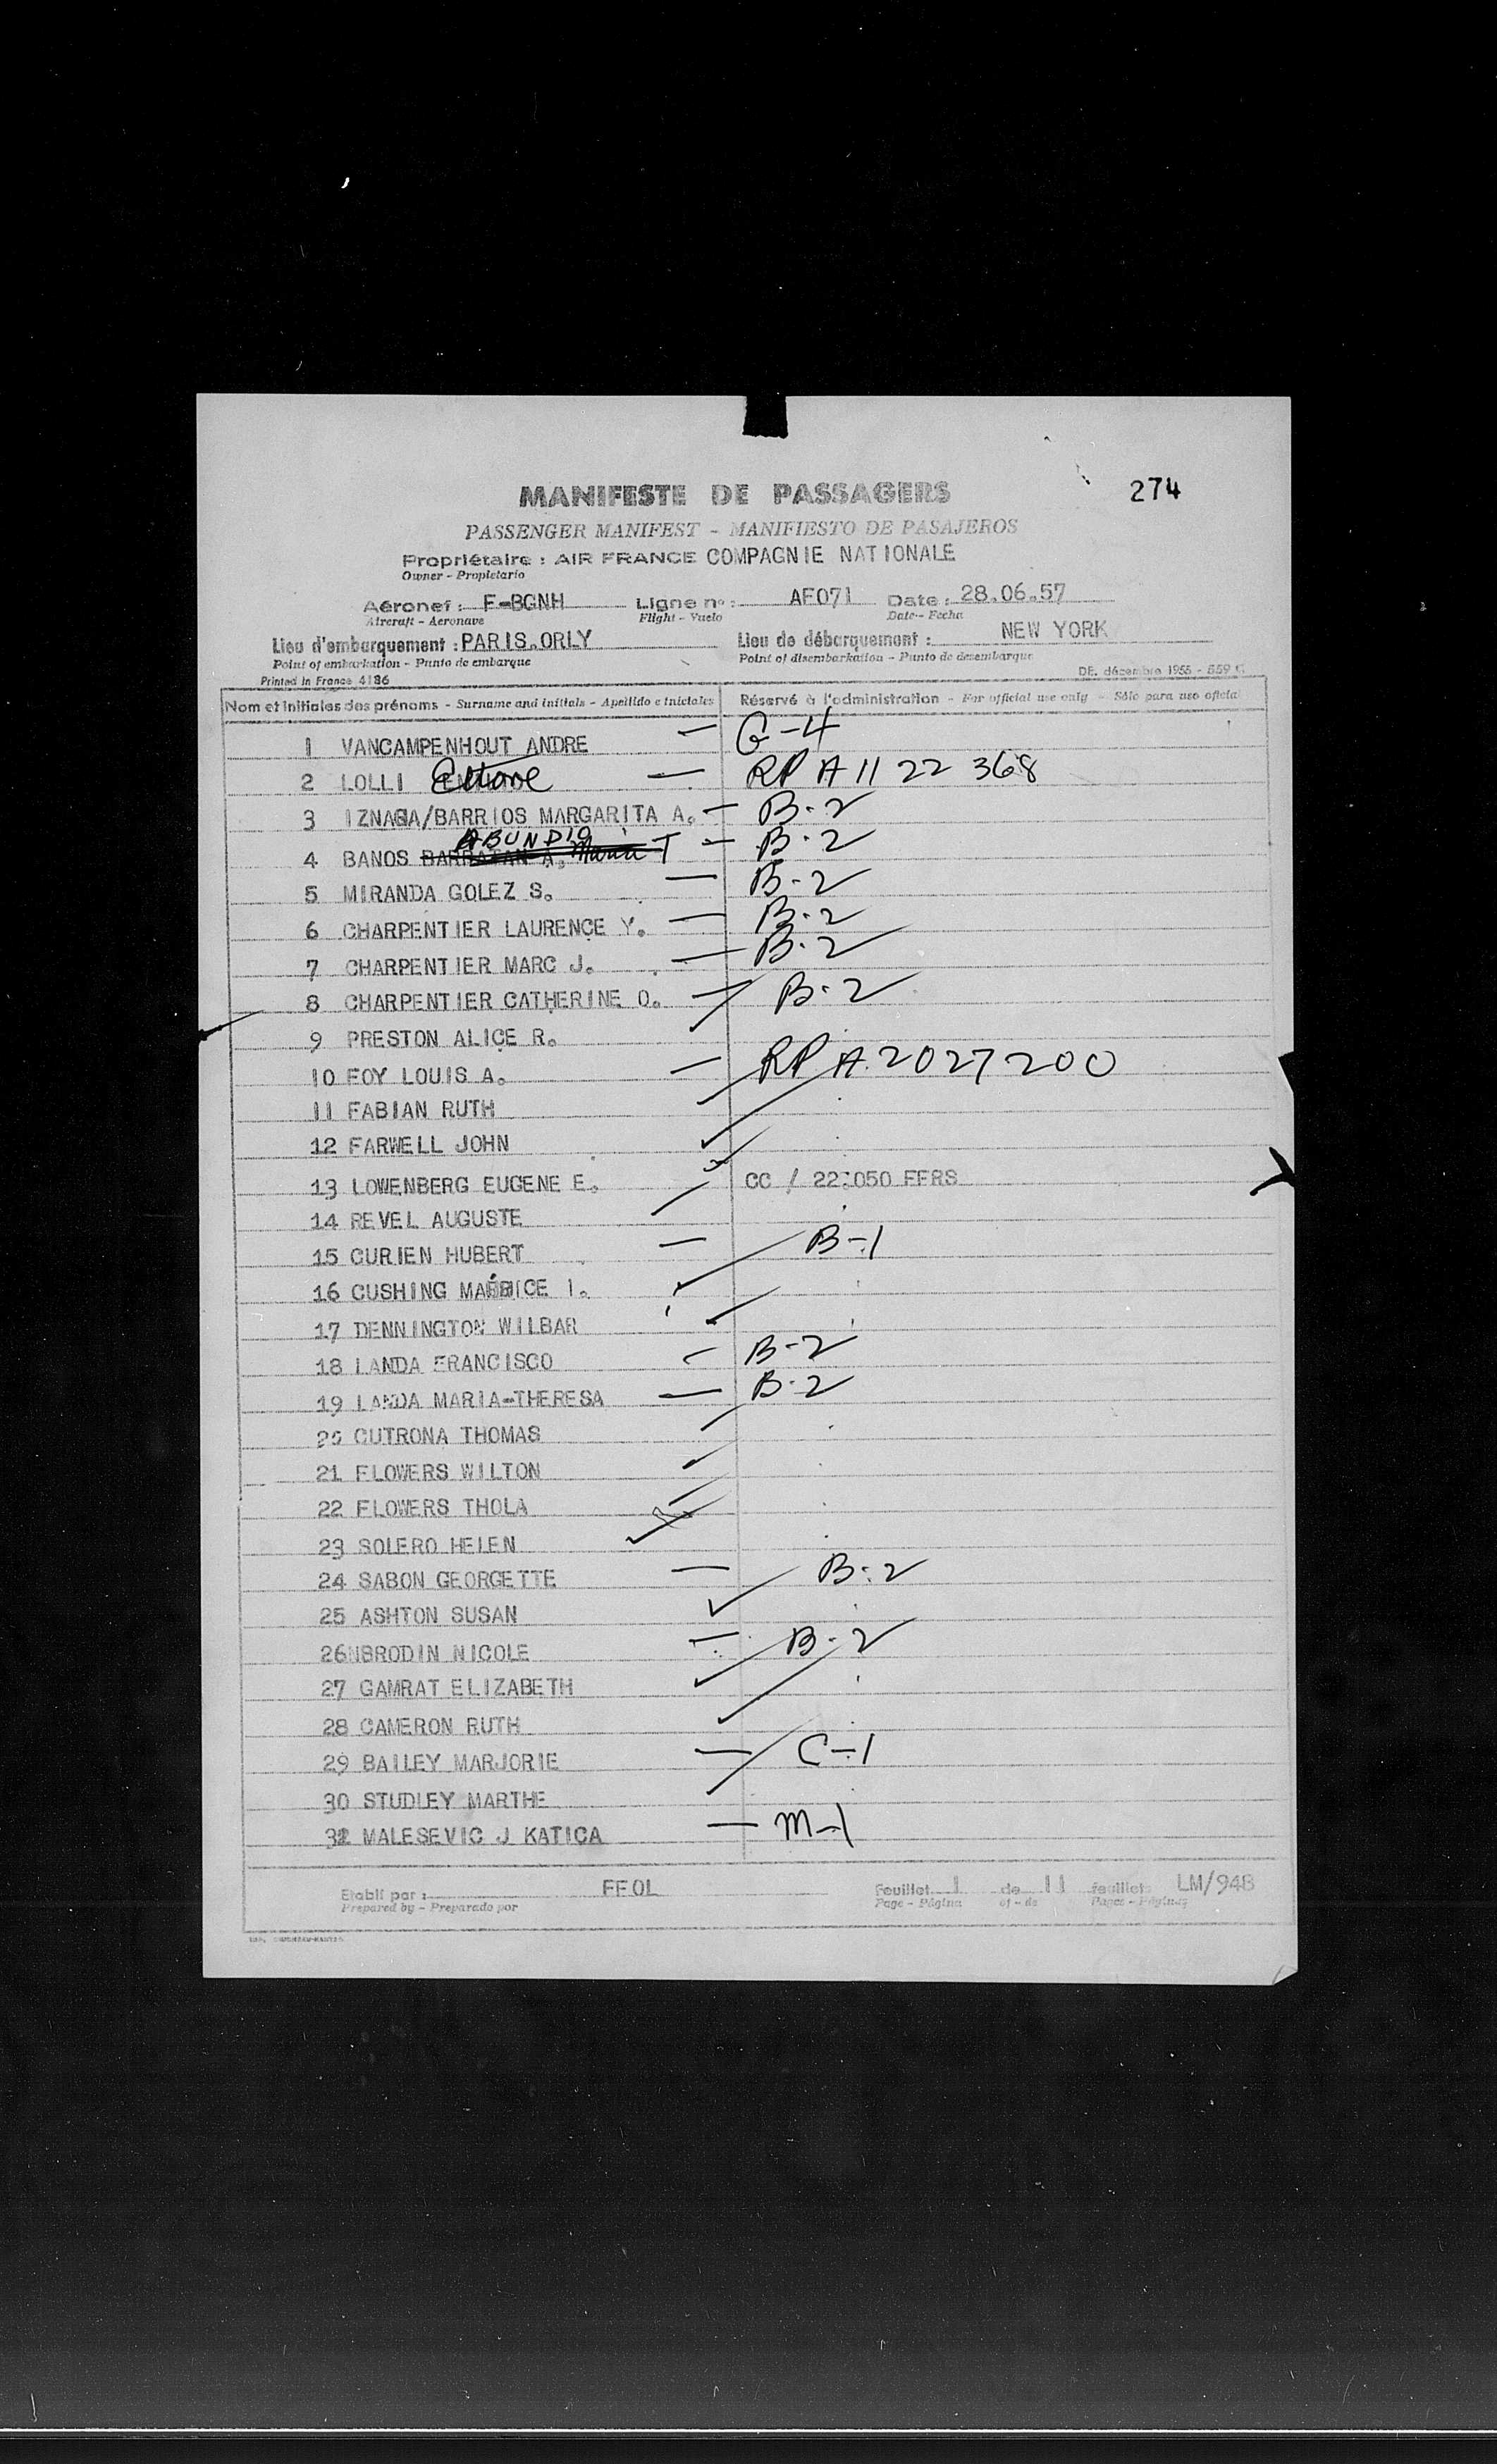 274
MANIFESTE DE PASSAGERS
PASSENGER MANIFEST - MANIFIESTO DE PASAJEROS
Propriétaire : AIR FRANCE COMPAGNIE NATIONALE
Owner - Propietario
Aéronef : F-BGNH Ligne n° : AF071 Date : 28.06.57
Aircraft - Aeronave Flight - Vuelo Date - Fecha
Lieu d'embarquement : PARIS.ORLY Lieu de débarquement : NEW YORK
Point of embarkation - Punto de embarque Point of disembarkation - Punto de desembarque
Printed in France 4186 DE. décembre 1955 - 559 C
Nom et initiales des prénoms - Surname and initials - Apellido e iniciales Réservé à l'administration - For official use only - Sólo para uso oficial
1 VANCAMPENHOUT ANDRE — G-4
2 LOLLI Ettore — RP A11 22 368
3 IZNAGA/BARRIOS MARGARITA A. — B-2
ABUNDIO
4 BANOS BARBATAN A. Maria T — B-2
5 MIRANDA GOLEZ S. — B-2
6 CHARPENTIER LAURENCE Y. — B-2
7 CHARPENTIER MARC J. — B-2
8 CHARPENTIER CATHERINE O. — B-2
9 PRESTON ALICE R.
10 FOY LOUIS A. — RP A 2027200
11 FABIAN RUTH
12 FARWELL JOHN
13 LOWENBERG EUGENE E. CC / 22.050 FFRS
14 REVEL AUGUSTE
15 CURIEN HUBERT — B-1
16 CUSHING MAURICE I.
17 DENNINGTON WILBAR
18 LANDA FRANCISCO — B-2
19 LANDA MARIA-THERESA — B-2
20 CUTRONA THOMAS
21 FLOWERS WILTON
22 FLOWERS THOLA
23 SOLERO HELEN
24 SABON GEORGETTE — B-2
25 ASHTON SUSAN
26 NBRODIN NICOLE — B-2
27 GAMRAT ELIZABETH
28 CAMERON RUTH
29 BAILEY MARJORIE — C-1
30 STUDLEY MARTHE
31 MALESEVIC J KATICA — M-1
Etabli par : FFOL Feuillet 1 de 11 feuillets LM/948
Prepared by - Preparado por Page - Página of - de Pages - Páginas